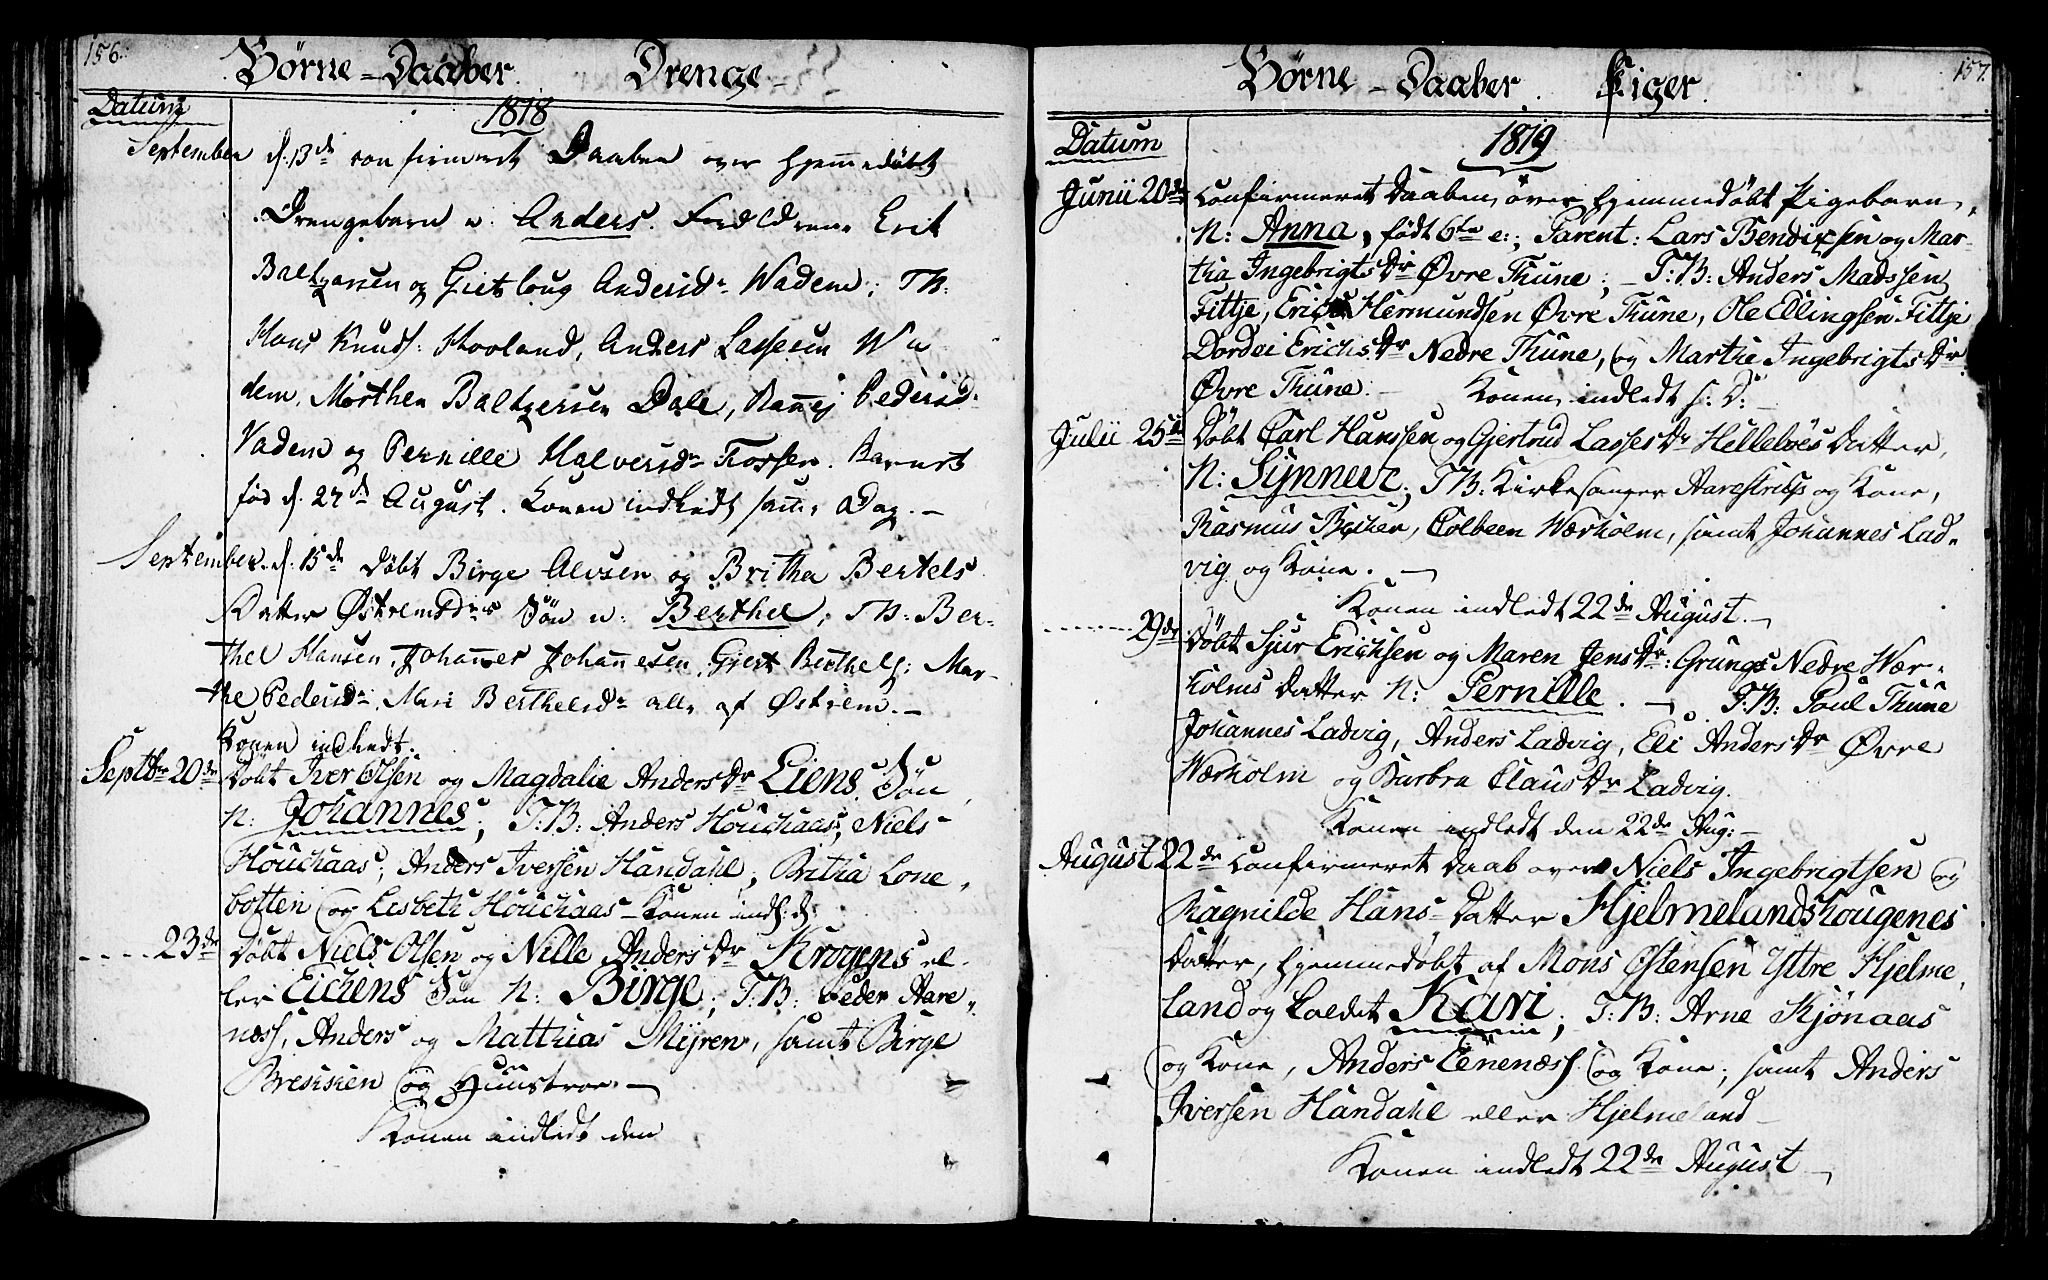 156.
Børne-Daaber. Drenge-
Datum
1818
September d. 13de confirmert Daaben over hjemmedöbt
Drengebarn n. Anders. Forældrene Erik
Baltzersen og Giertloug Andersdr Wadem; TB:
Hans Knuds: Hovland, Anders Lassesen Wa
dem, Morthen Baltzersen Dale, Ranvej Pedersd:
Vadem og Pernille Halversdr Fossen. Barnet
fød d. 27de August. Konen indledt samme Dag. -
September d. 15de Døbt Birge Alvsen og Britha Bertels
Datter Østremsdrs Sön n: Berthel; TB: Ber-
thel Hansen, Johannes Johannesen, Giert Berthels: Mar-
the Pedersdr, Mari Berthelsdr alle af Østrem. -
Konen indledt.
Septbr 20de Døbt Iver Olsen og Magdalie AndersDr Liens Sön
N: Johannes; T:B: Anders Houchaas, Niels
Houchaas, Anders Iversen Handahl, Britha Lone
botten og Lisbeth Houchaas - Konen indl: d:
23de Døbt Niels Olsen og Nille AndersDr Krogens el-
ler Eichens Søn N: Birge; T:B: Peder Aare-
næss, Anders og Matthias Mÿren, samt Birge
Brekken og Huustroe. -
Konen indledt den

157.
Børne-Daaber. Piger.
Datum
1819
Junii 20de Confirmeret Daaben over hjemmedøbt Pigebarn,
N: Anna, født 6te e:; Parent: Lars Bendixsen og Mar-
tha IngebrigtsDr Øvre Thune; - T:B: Anders Madssen
Fittje, Erich Hermundsen Øvre Thune, Ole Ellingsen Fittje
Dordei ErichsDr Nedre Thune, og Marthe IngebrigtsDr
Øvre Thune. - Konen indledt s: D: -
Julii 25de Døbt Carl Hanssen og Gjertrud LassesDr Hellelöes Datter,
N: Sÿnneve; T:B: Kirkesanger Aarestrup og Kone,
Rasmus Becker, Colbeen Wærholm, samt Johannes Lad-
vig og Kone. -
Konen indledt 22de August. -
29de Døbt Sjur Erichsen og Maren JensDr: Grungs Nedre Wær-
holms Datter N: Pernille. - T:B: Poul Thune
Johannes Ladvig, Anders Ladvig, Eli AndersDr Øvre
Wærholm og Barbra ClausDr Ladvig.
Konen indledt den 22de Aug: -
August 22de Confirmeret Daab over Niels Ingebrigtsen og
Ragnilde Hans-Datter Hjelmelandskougenes
Datter, hjemmedøbt af Mons Østensen Yttre Hjelme,
land og kaldet Kari; T:B: Arne Kjönaas
og Kone, Anders Eenenæss og Kone; samt Anders
Iversen Handahl eller Hjelmeland
Konen indledt 22de August -